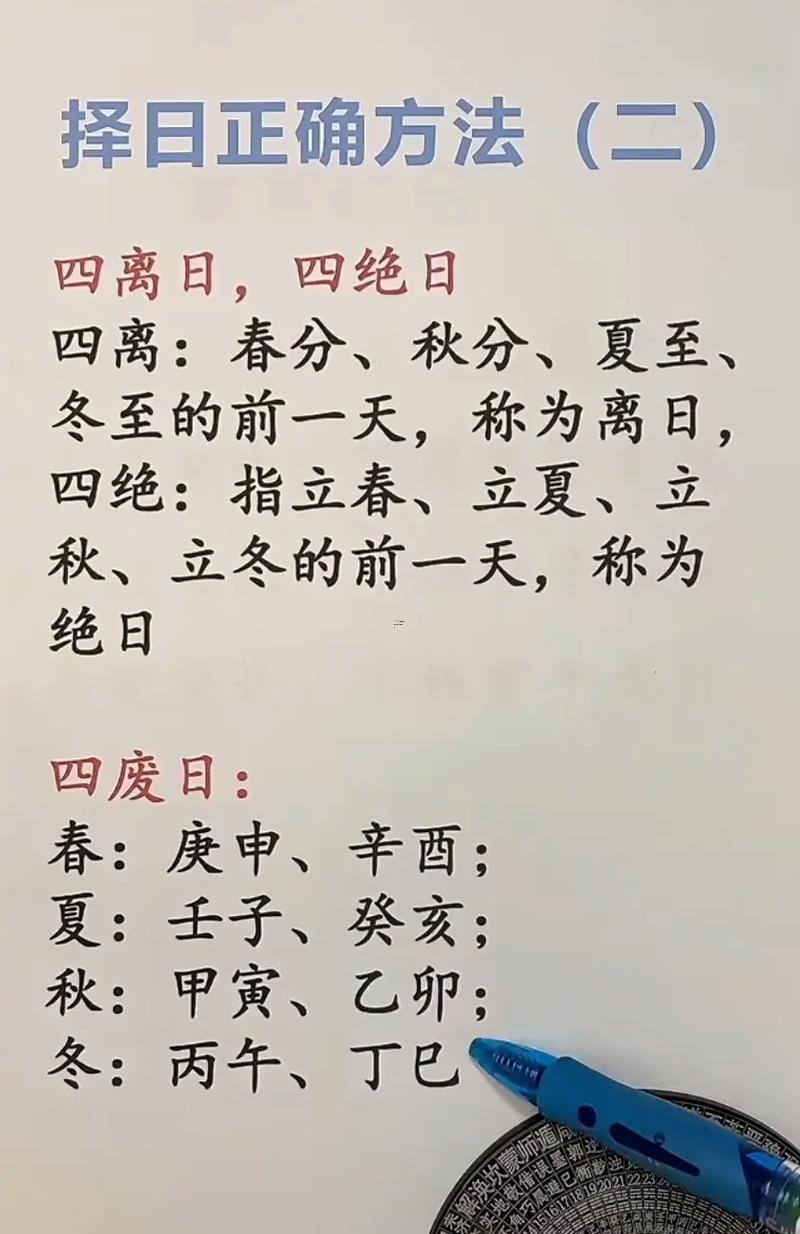 择日正确方法（二）
四离日，四绝日
四离：春分、秋分、夏至、
冬至的前一天，称为离日，
四绝：指立春、立夏、立
秋、立冬的前一天，称为
绝日
四废日：
春：庚申、辛酉；
夏：壬子、癸亥；
秋：甲寅、乙卯；
冬：丙午、丁巳